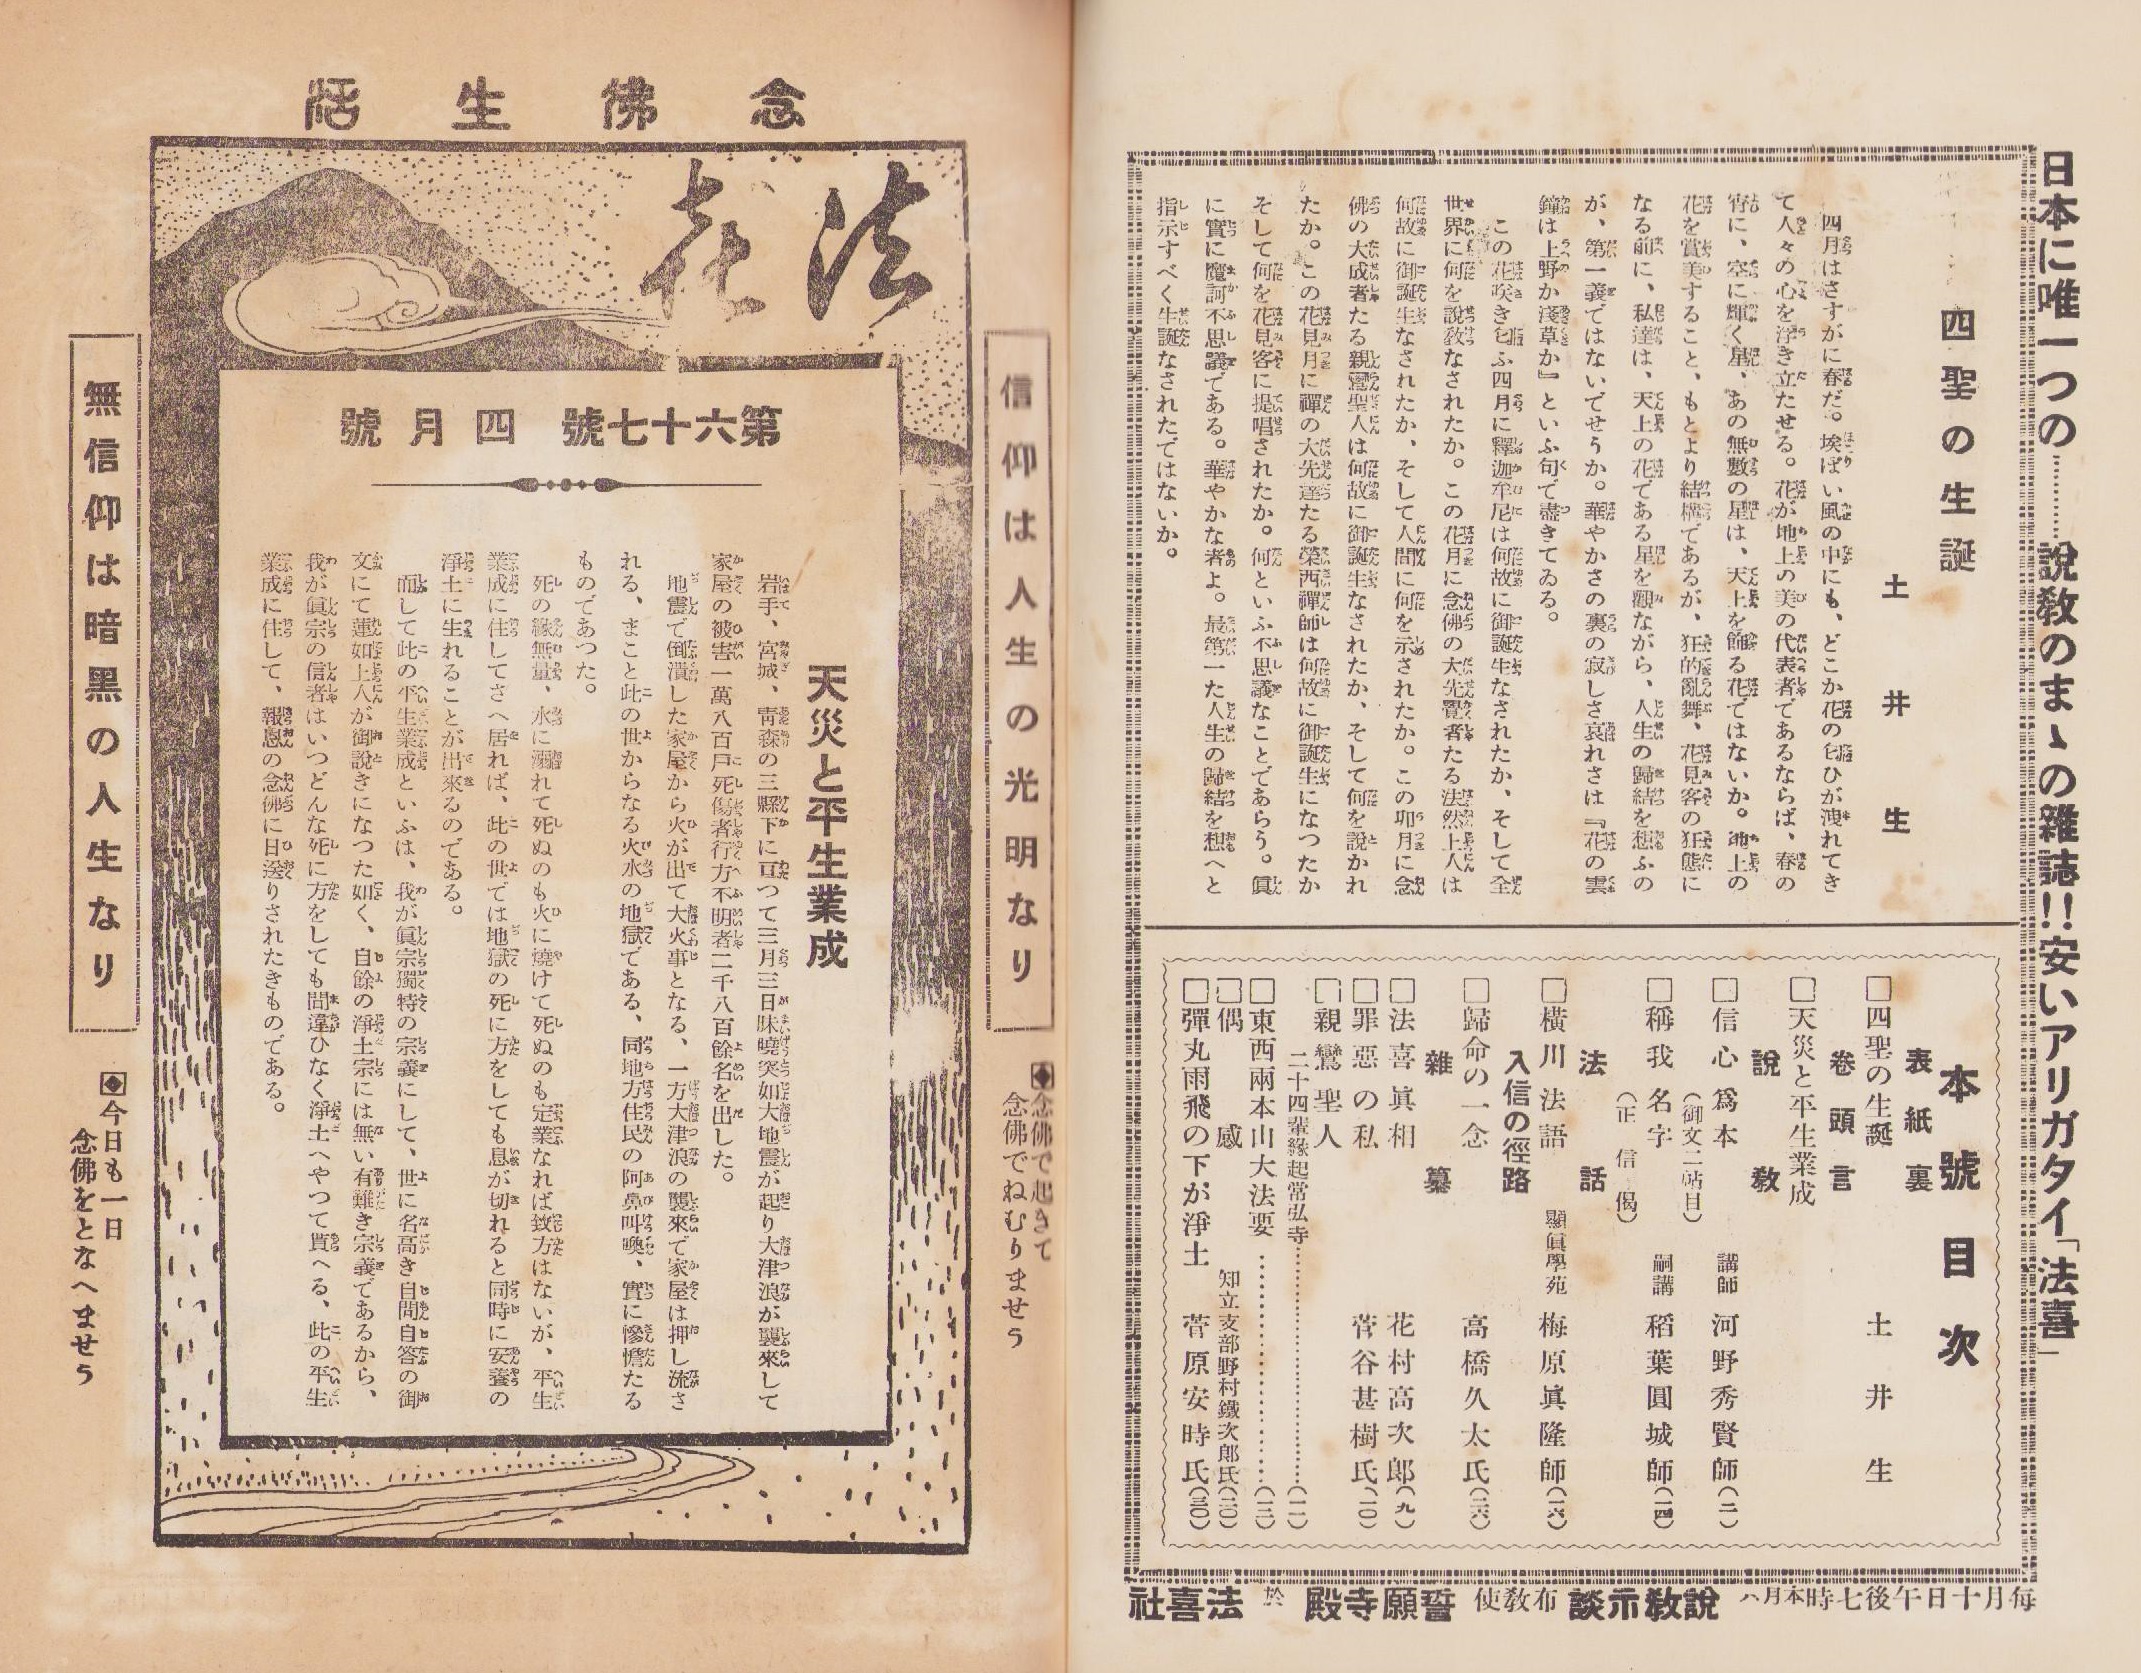 日本に唯一つの………說敎のまゝの雜誌!!安いアリガタイ「法喜」
四聖の生誕
土井生
四月はさすがに春だ。埃ぽい風の中にも、どこか花の匂ひが洩れてき
て人々の心を浮き立たせる。花が地上の美の代表者であるならば、春の
宵に、空に輝く星、あの無數の星は、天上を飾る花ではないか。地上の
花を賞美すること、もとより結構であるが、狂的亂舞、花見客の狂態に
なる前に、私達は、天上の花である星を觀ながら、人生の歸結を想ふの
が、第一義ではないでせうか。華やかさの裏の寂しさ哀れさは『花の雲
鐘は上野か淺草か』といふ句で盡きてゐる。
この花咲き匂ふ四月に釋迦牟尼は何故に御誕生なされたか、そして全
世界に何を說敎なされたか。この花月に念佛の大先覺者たる法然上人は
何故に御誕生なされたか、そして人間に何を示されたか。この卯月に念
佛の大成者たる親鸞聖人は何故に御誕生なされたか、そして何を說かれ
たか。この花見月に禪の大先達たる榮西禪師は何故に御誕生になつたか
そして何を花見客に提唱されたか。何といふ不思議なことであらう。眞
に實に魔訶不思議である。華やかな者よ。最第一た人生の歸結を想へと
指示すべく生誕なされたではないか。
本號目次
表紙裏
□四聖の生誕 土井生
卷頭言
□天災と平生業成
說敎
□信心爲本 講師 河野秀賢師(二)
(御文二帖目)
□稱我名字 嗣講 稻葉圓城師(一四)
(正信偈)
法話
□橫川法語 顯眞學苑 梅原眞隆師(一六)
入信の徑路
□歸命の一念 高橋久太氏(二六)
雜纂
□法喜眞相 花村高次郎(九)
□罪惡の私 菅谷甚樹氏(一〇)
□親鸞聖人
二十四輩緣起常弘寺………(一一)
□東西兩本山大法要………(一三)
□偶感 知立支部野村鐵次郎氏(二〇)
□彈丸雨飛の下が淨土 菅原安時氏(三〇)
每月十日午後七時本月ハ 說敎示談 布敎使 誓願寺殿 於 法喜社
信仰は人生の光明なり
念佛で起きて
念佛でねむりませう
念佛生活
法花
第六十七號 四月號
天災と平生業成
岩手、宮城、靑森の三縣下に亘つて三月三日昧曉突如大地震が起り大津浪が襲來して
家屋の被害一萬八百戶死傷者行方不明者二千八百餘名を出した。
地震で倒潰した家屋から火が出て大火事となる、一方大津浪の襲來で家屋は押し流さ
れる、まこと此の世からなる火水の地獄である、同地方住民の阿鼻叫喚、實に慘憺たる
ものであつた。
死の緣無量、水に溺れて死ぬのも火に燒けて死ぬのも定業なれば致方はないが、平生
業成に住してさへ居れば、此の世では地獄の死に方をしても息が切れると同時に安養の
淨土に生れることが出來るのである。
而して此の平生業成といふは、我が眞宗獨特の宗義にして、世に名高き自問自答の御
文にて蓮如上人が御說きになつた如く、自餘の淨土宗には無い有難き宗義であるから、
我が眞宗の信者はいつどんな死に方をしても間違ひなく淨土へやつて貰へる、此の平生
業成に住して、報恩の念佛に日送りされたきものである。
無信仰は暗黑の人生なり
今日も一日
念佛をとなへませう